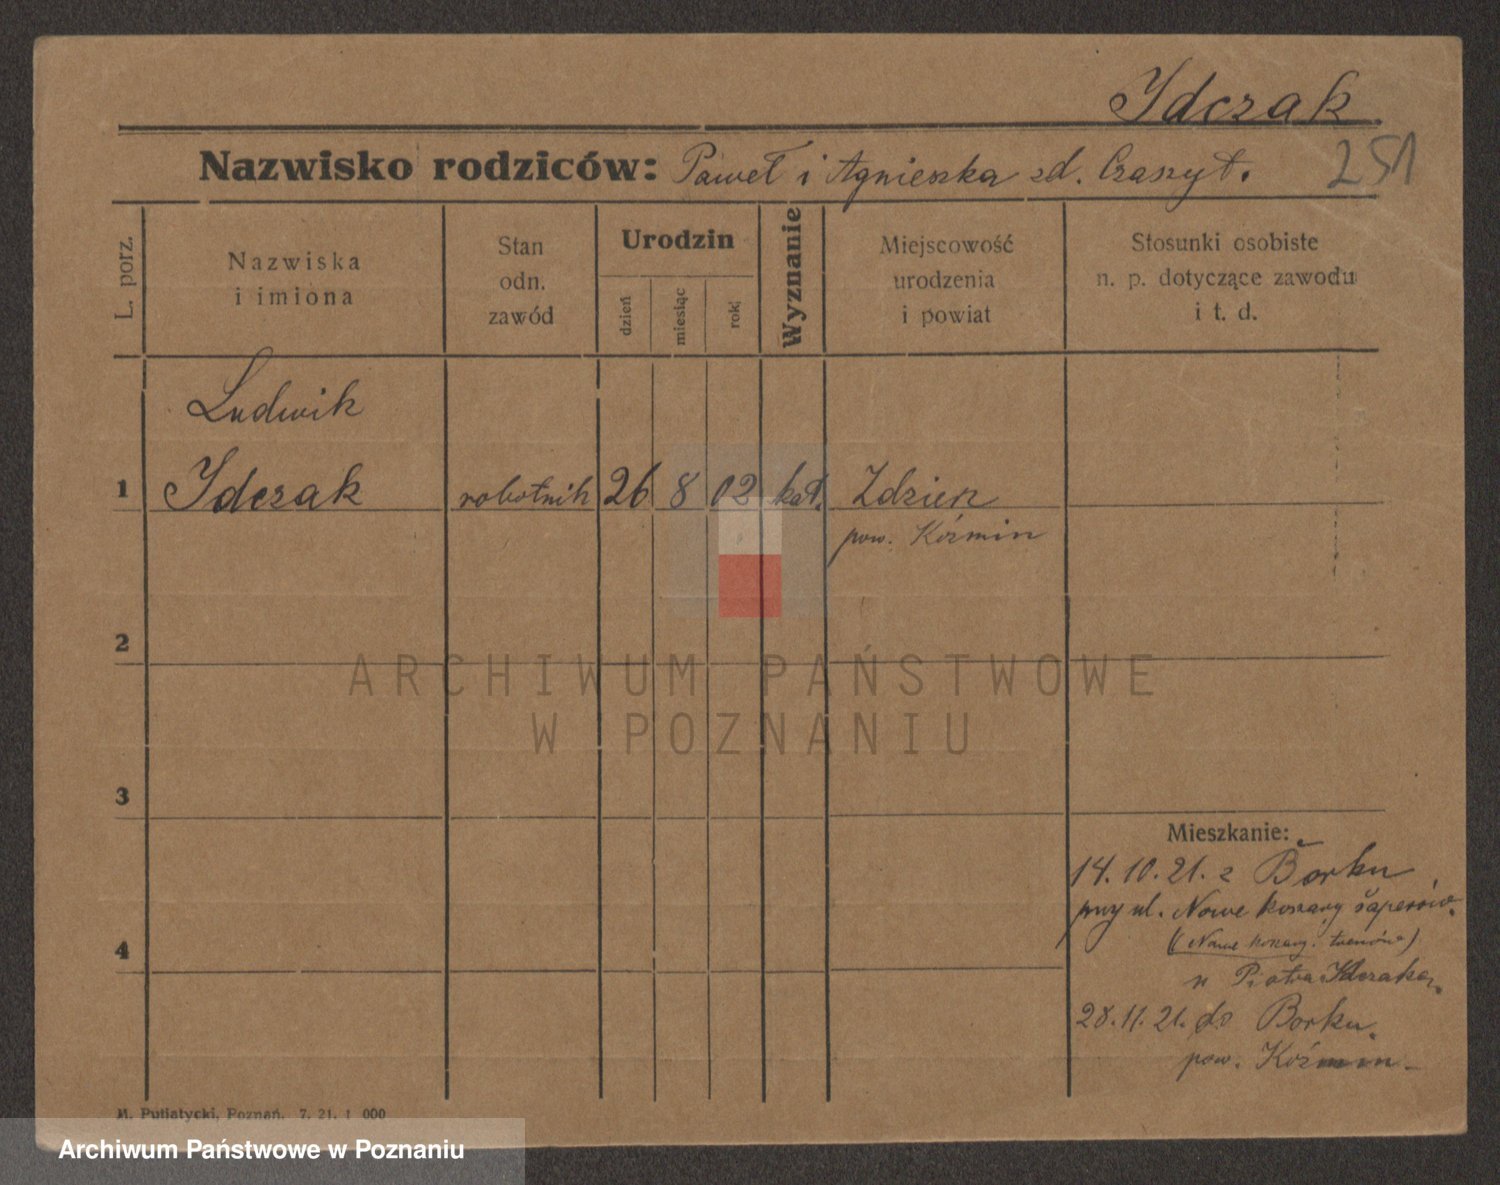 Idczak
251
Nazwisko rodziców: Paweł i Agnieszka zd. Czaszyt.
L. porz.
Nazwiska
i imiona
Stan
odn.
zawód
Urodzin
dzień
miesiąc
rok
Wyznanie
Miejscowość
urodzenia
i powiat
Stosunki osobiste
n. p. dotyczące zawodu
i t. d.
Ludwik
1 Idczak robotnik 26 8 02 kat. Zdzien
pow. Koźmin
2
3
4
ARCHIWUM PAŃSTWOWE
W POZNANIU
Mieszkanie:
14. 10. 21. z Borku
przy ul. Nowe koszary saperów.
(Nowe koszary. trenów)
u Piotra Idczaka.
28. 11. 21. do Borku.
pow. Koźmin
M. Putiatycki, Poznań, 7. 21. 1 000
Archiwum Państwowe w Poznaniu